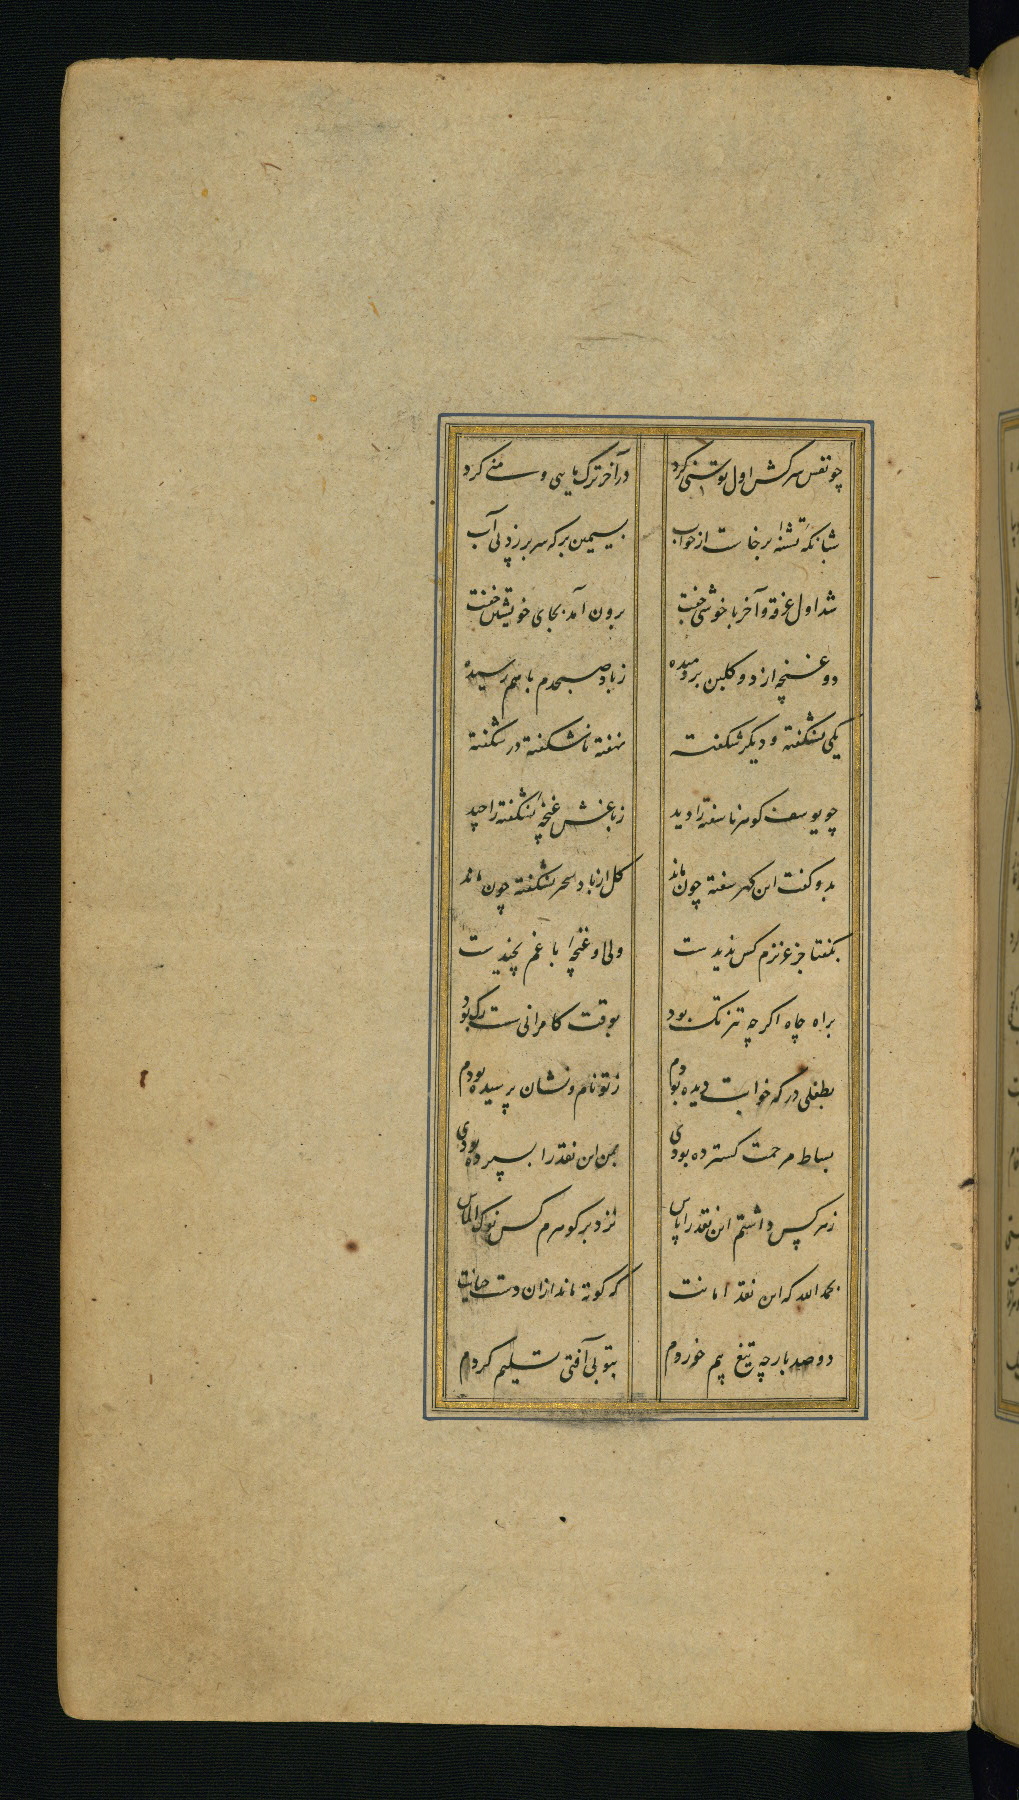 چو نفس سرکش اول توسنی کرد در آخر ترک مایی و منی کرد
شبانگه تشنهٔ برخاست از خواب بسیمین برکه سر بر زد پی آب
شد اول غرقه و آخر با خوشی خفت برون آمد بجای خویشتن خفت
دو غنچه از دو گلبن بر دمیده ز باد صبحدم با هم رسیده
یکی نشکفته و دیگر شکفته نهفته ناشکفته در شکفته
چو یوسف گوهر ناسفته را دید ز باغش غنچهٔ نشکفته را چید
بدو گفت این گهر ناسفته چون ماند گل از باد سحر نشکفته چون ماند
بگفتا جز عزیزم کس ندیدست ولی او غنچهٔ باغم نچیدست
براه جاه اگر چه تیزتگ بود بوقت کامرانی سست رگ بود
بطفلی در که خوابت دیده بودم ز تو نام و نشان پرسیده بودم
بساط مرحمت گسترده بودی بمن این نقد را بسپرده بودی
ز هر کس داشتم این نقد را پاس نزد بر گوهرم کس نوک الماس
بحمد الله که این نقد امانت که کوته ماند ازان دست خیانت
دو صد بار چه تیغ بیم خوردم بتو بی آفتی تسلیم کردم